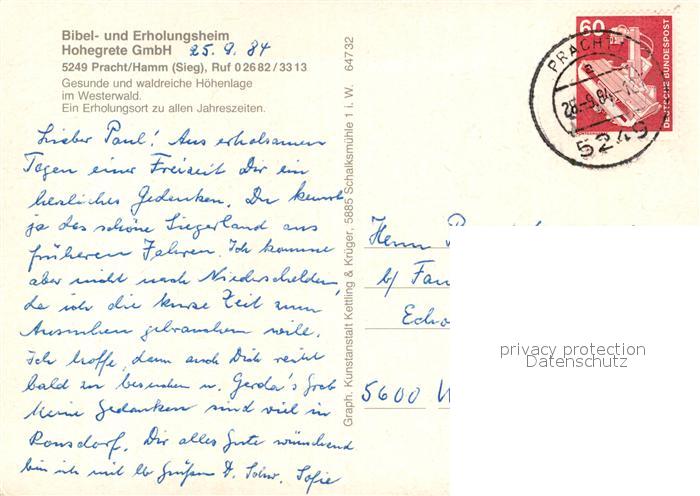 Bibel- und Erholungsheim
Hohegrete GmbH 25.9.84
5249 Pracht/Hamm (Sieg), Ruf 0 26 82 / 33 13
Gesunde und waldreiche Höhenlage
im Westerwald.
Ein Erholungsort zu allen Jahreszeiten.
Lieber Paul! Aus erholsamen
Tagen einer Freizeit Dir ein
herzliches Gedenken. Du kennst
ja das schöne Siegerland aus
früheren Jahren. Ich komme
aber nicht nach Niederschelden,
da ich die kurze Zeit zum
Ausruhen gebrauchen will.
Ich hoffe, dann auch Dich recht
bald zu besuchen u. Gerda's Grab
Meine Gedanken sind viel in
Ronsdorf. Dir alles Gute wünschend
bin ich mit lb Grüßen D. Schw. Sofie
Graph. Kunstanstalt Kettling & Krüger, 5885 Schalksmühle 1 i. W. 64732
60
DEUTSCHE BUNDESPOST
PRACHT
5249
Herrn
b/ Fam
Echo
5600 W
privacy protection
Datenschutz